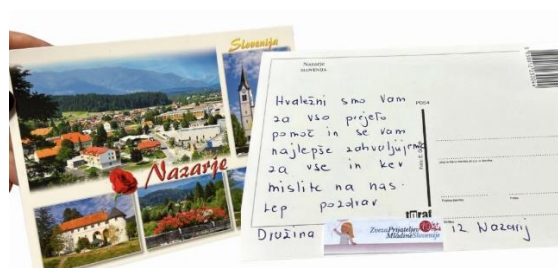 Slovenija
Nazarje
Nazarje
slovenija
Hvaležni smo Vam
za vso prejeto
pomoč in se vam
najlepše zahvaljujemo
za vse in ker
mislite na nas.
Lep pozdrav
Družina
Zveza Prijateljev
Mladine Slovenije
iz Nazarij